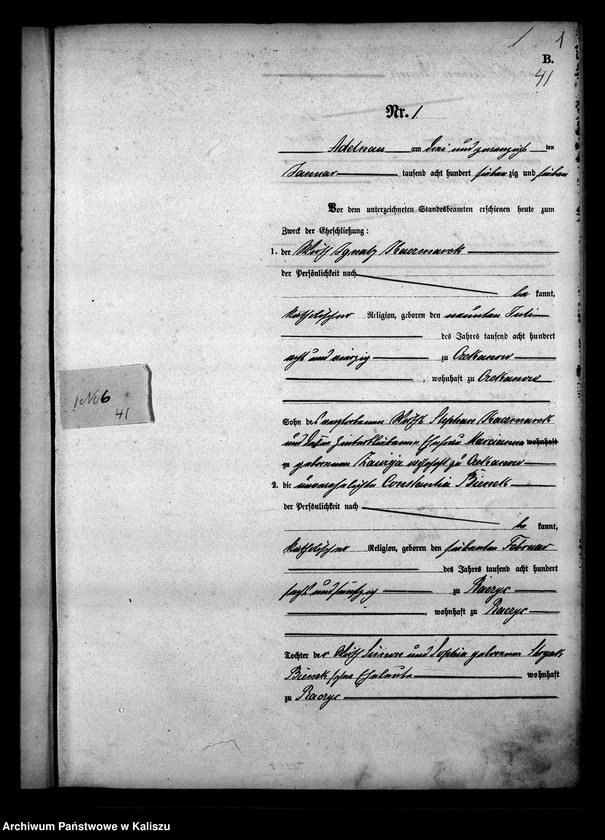 1 1
B.
41
Nr. 1
Adelnau am drei und zwanzigsten
Januar tausend acht hundert siebenzig und sieben
Vor dem unterzeichneten Standesbeamten erschienen heute zum
Zweck der Eheschließung:
1. der Wirth Ignatz Kaczmarek
der Persönlichkeit nach
be kannt,
katholischer Religion, geboren den neunten Juli
des Jahres tausend acht hundert
acht und vierzig zu Czekanow
, wohnhaft zu Czekanow
Sohn des verstorbenen Wirth Stephan Kaczmarek
und dessen hinterbliebenen Ehefrau Marianna wohnhaft
zu geborenen wohnhaft zu Czekanow
2. die unverehelichte Constantia Bienek
der Persönlichkeit nach
be kannt,
katholischer Religion, geboren den siebenten Februar
des Jahres tausend acht hundert
sechs und fünfzig zu Raczyc
, wohnhaft zu Raczyc
Tochter der Wirth Simon und Sophia geborenen
Bienek Eheleute wohnhaft
zu Raczyc
1 No 6
41
Archiwum Państwowe w Kaliszu